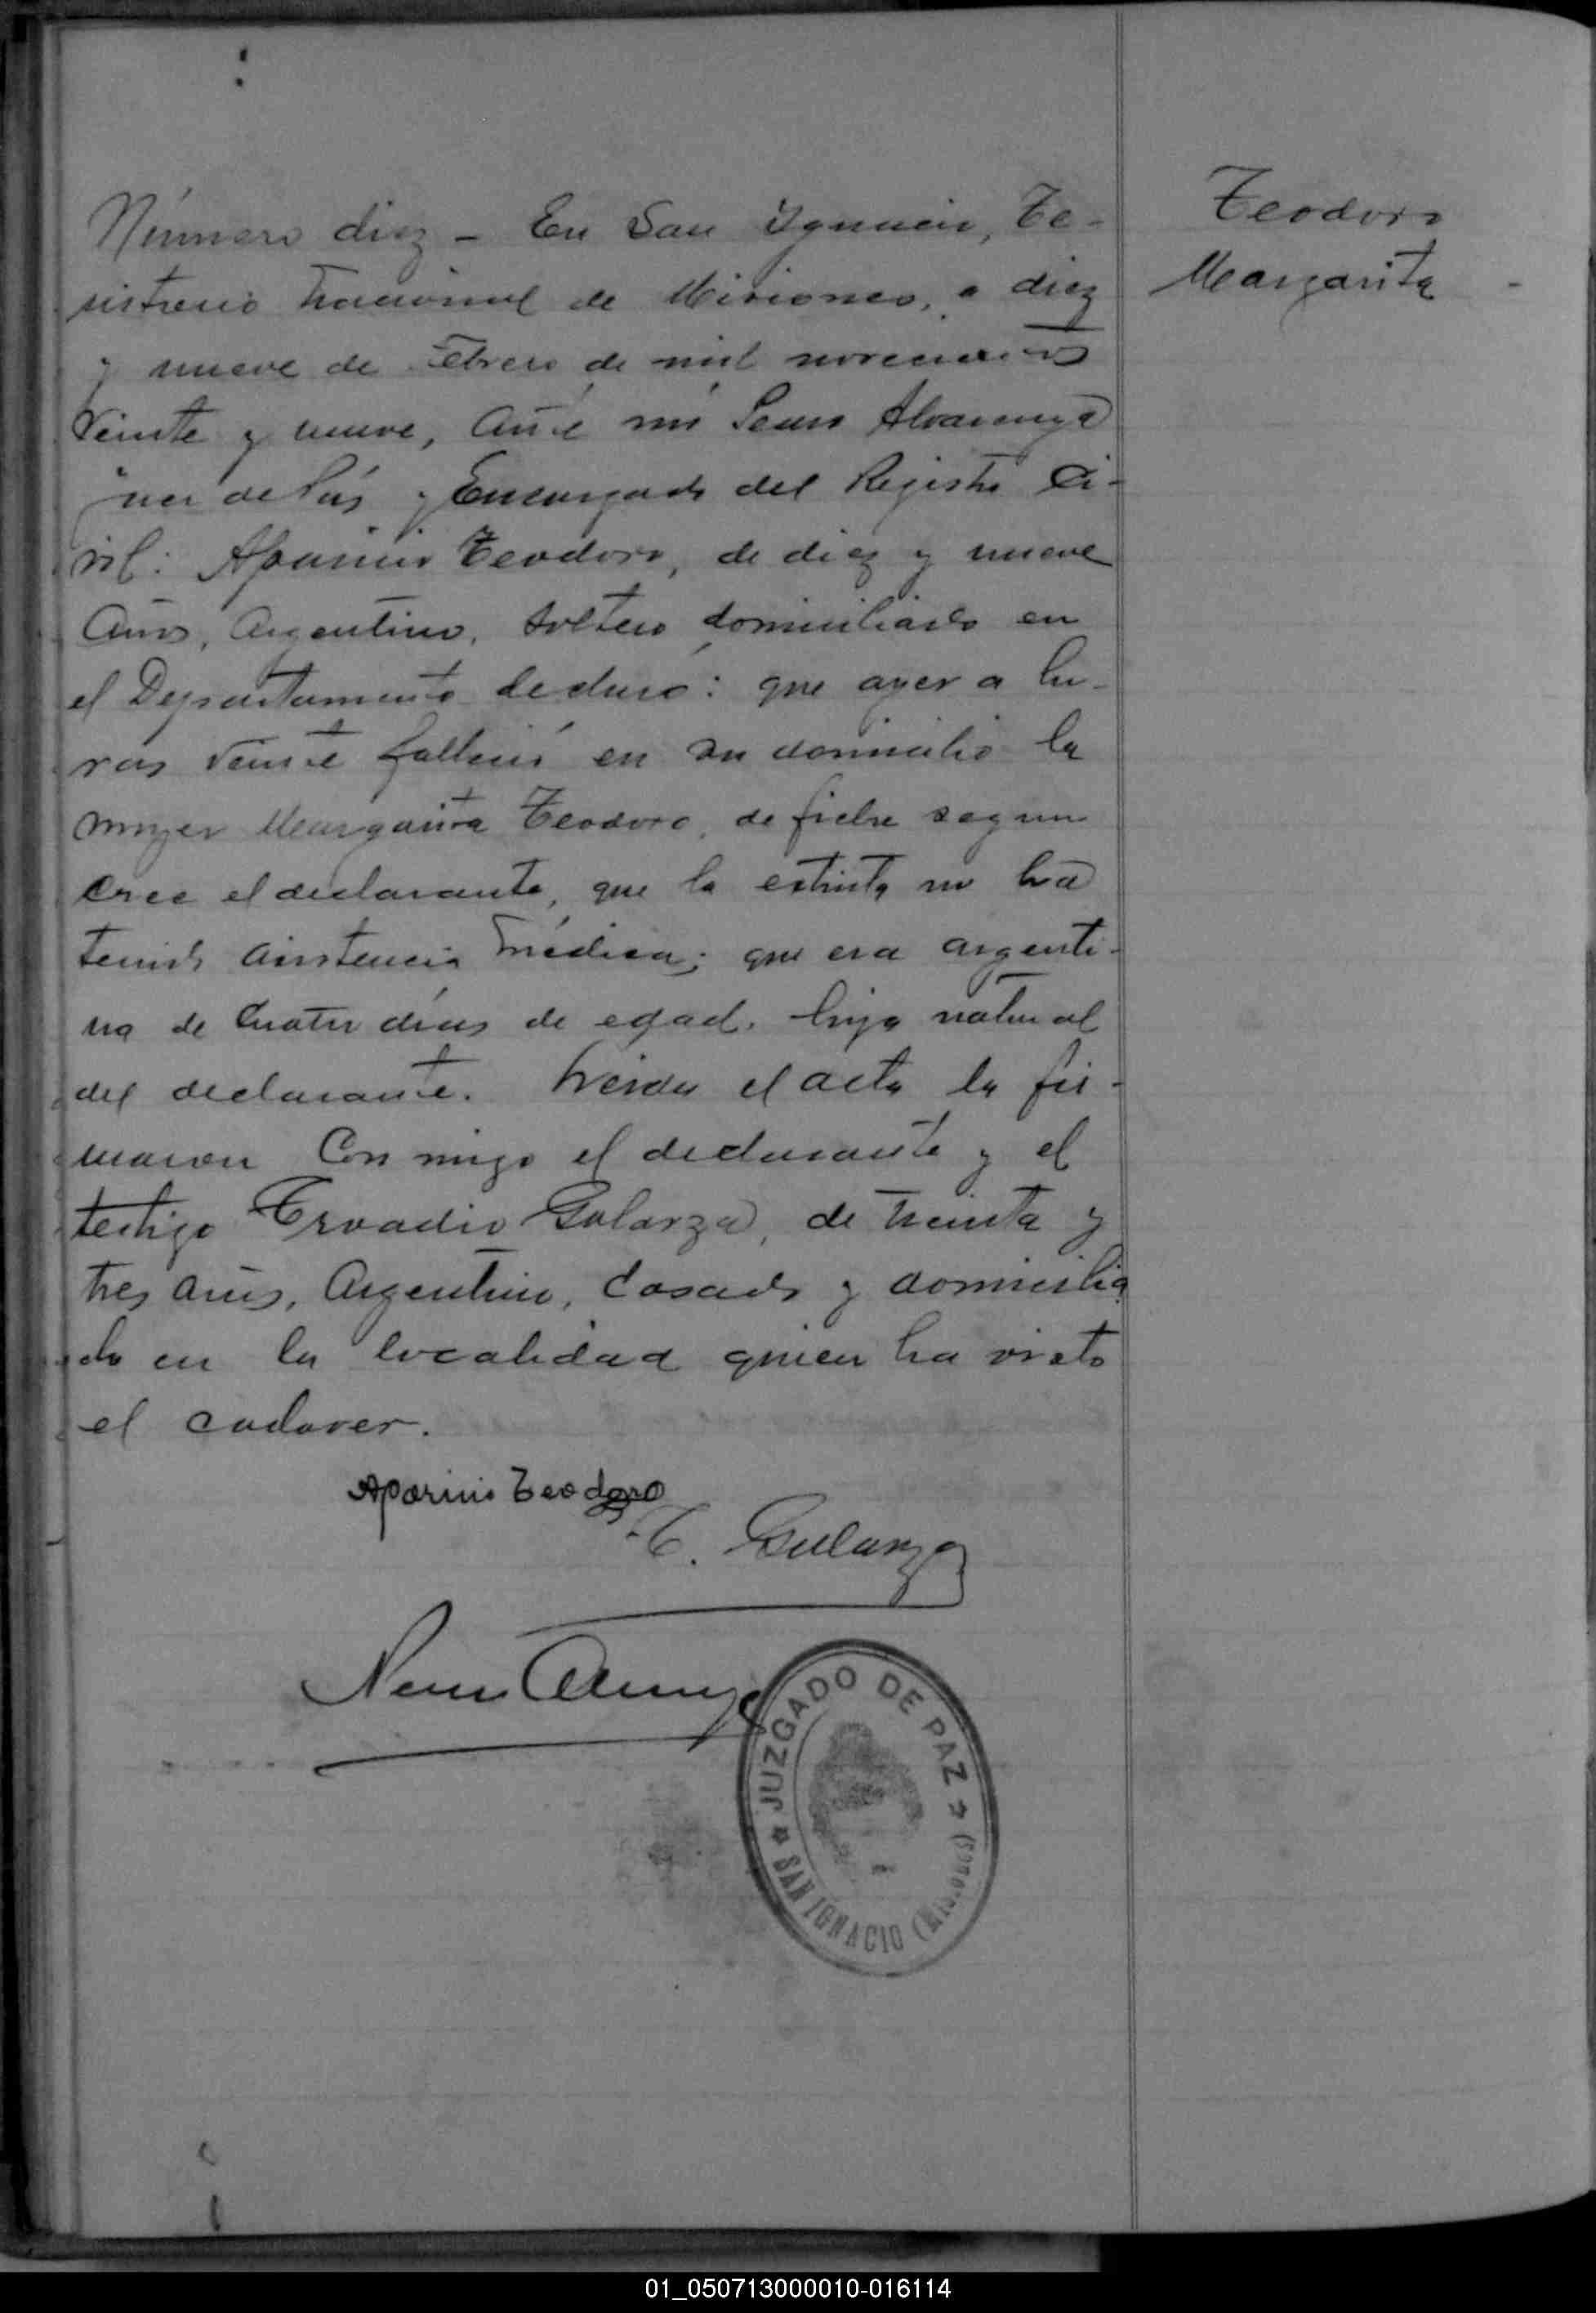 Teodoro
Margarita -
Número diez - En San Ignacio, Te-
rritorio Nacional de Misiones, a diez
y nueve de Febrero de mil novecientos
veinte y nueve, ante mi Alvarenga
Juez de Paz y Encargado del Registro Ci-
vil: Aparicio Teodoro, de diez y nueve
años, Argentino, soltero domiciliado en
el Departamento declaró: que ayer a ho-
ras veinte falleció en su domicilio la
mujer Margarita Teodoro, de fiebre segun
cree el declarante, que la extinta no ha
tenido asistencia médica; que era argenti-
na de cuatro días de edad. hija natural
del declarante. Leida el acta la fir-
maron Con migo el declarante y el
testigo Galarza, de treinta y
tres años, Argentino, Casado y domicilia
do en la localidad quien ha visto
el cadaver.
Aparicio Teodoro
T. Galarza
JUZGADO DE PAZ
SAN IGNACIO (Misiones)
01_050713000010-016114